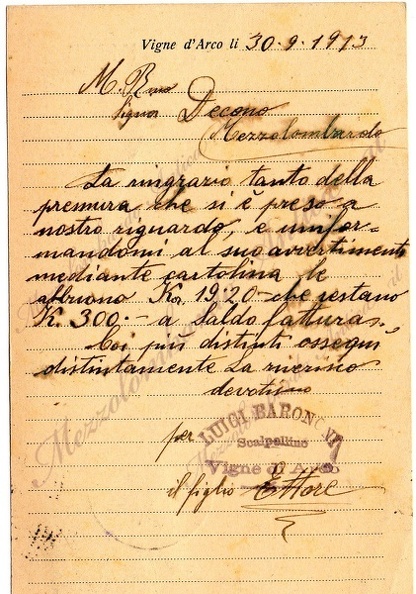 Vigne d'Arco li 30.9.1913
M. Rmo
Signor Decano
Mezzolombardo
La ringrazio tanto della
premura che si è preso a
nostro riguardo, e unifor-
mandomi al suo avvertimento
mediante cartolina le
abbuono Kr. 19.20 che restano
K. 300.- a saldo fattura.
Coi più distinti ossequi
distintamente La riverisco
devotissimo
per LUIGI BARONI
Scalpellino
Vigne d'Arco
il figlio Ettore
Mezzolombardo